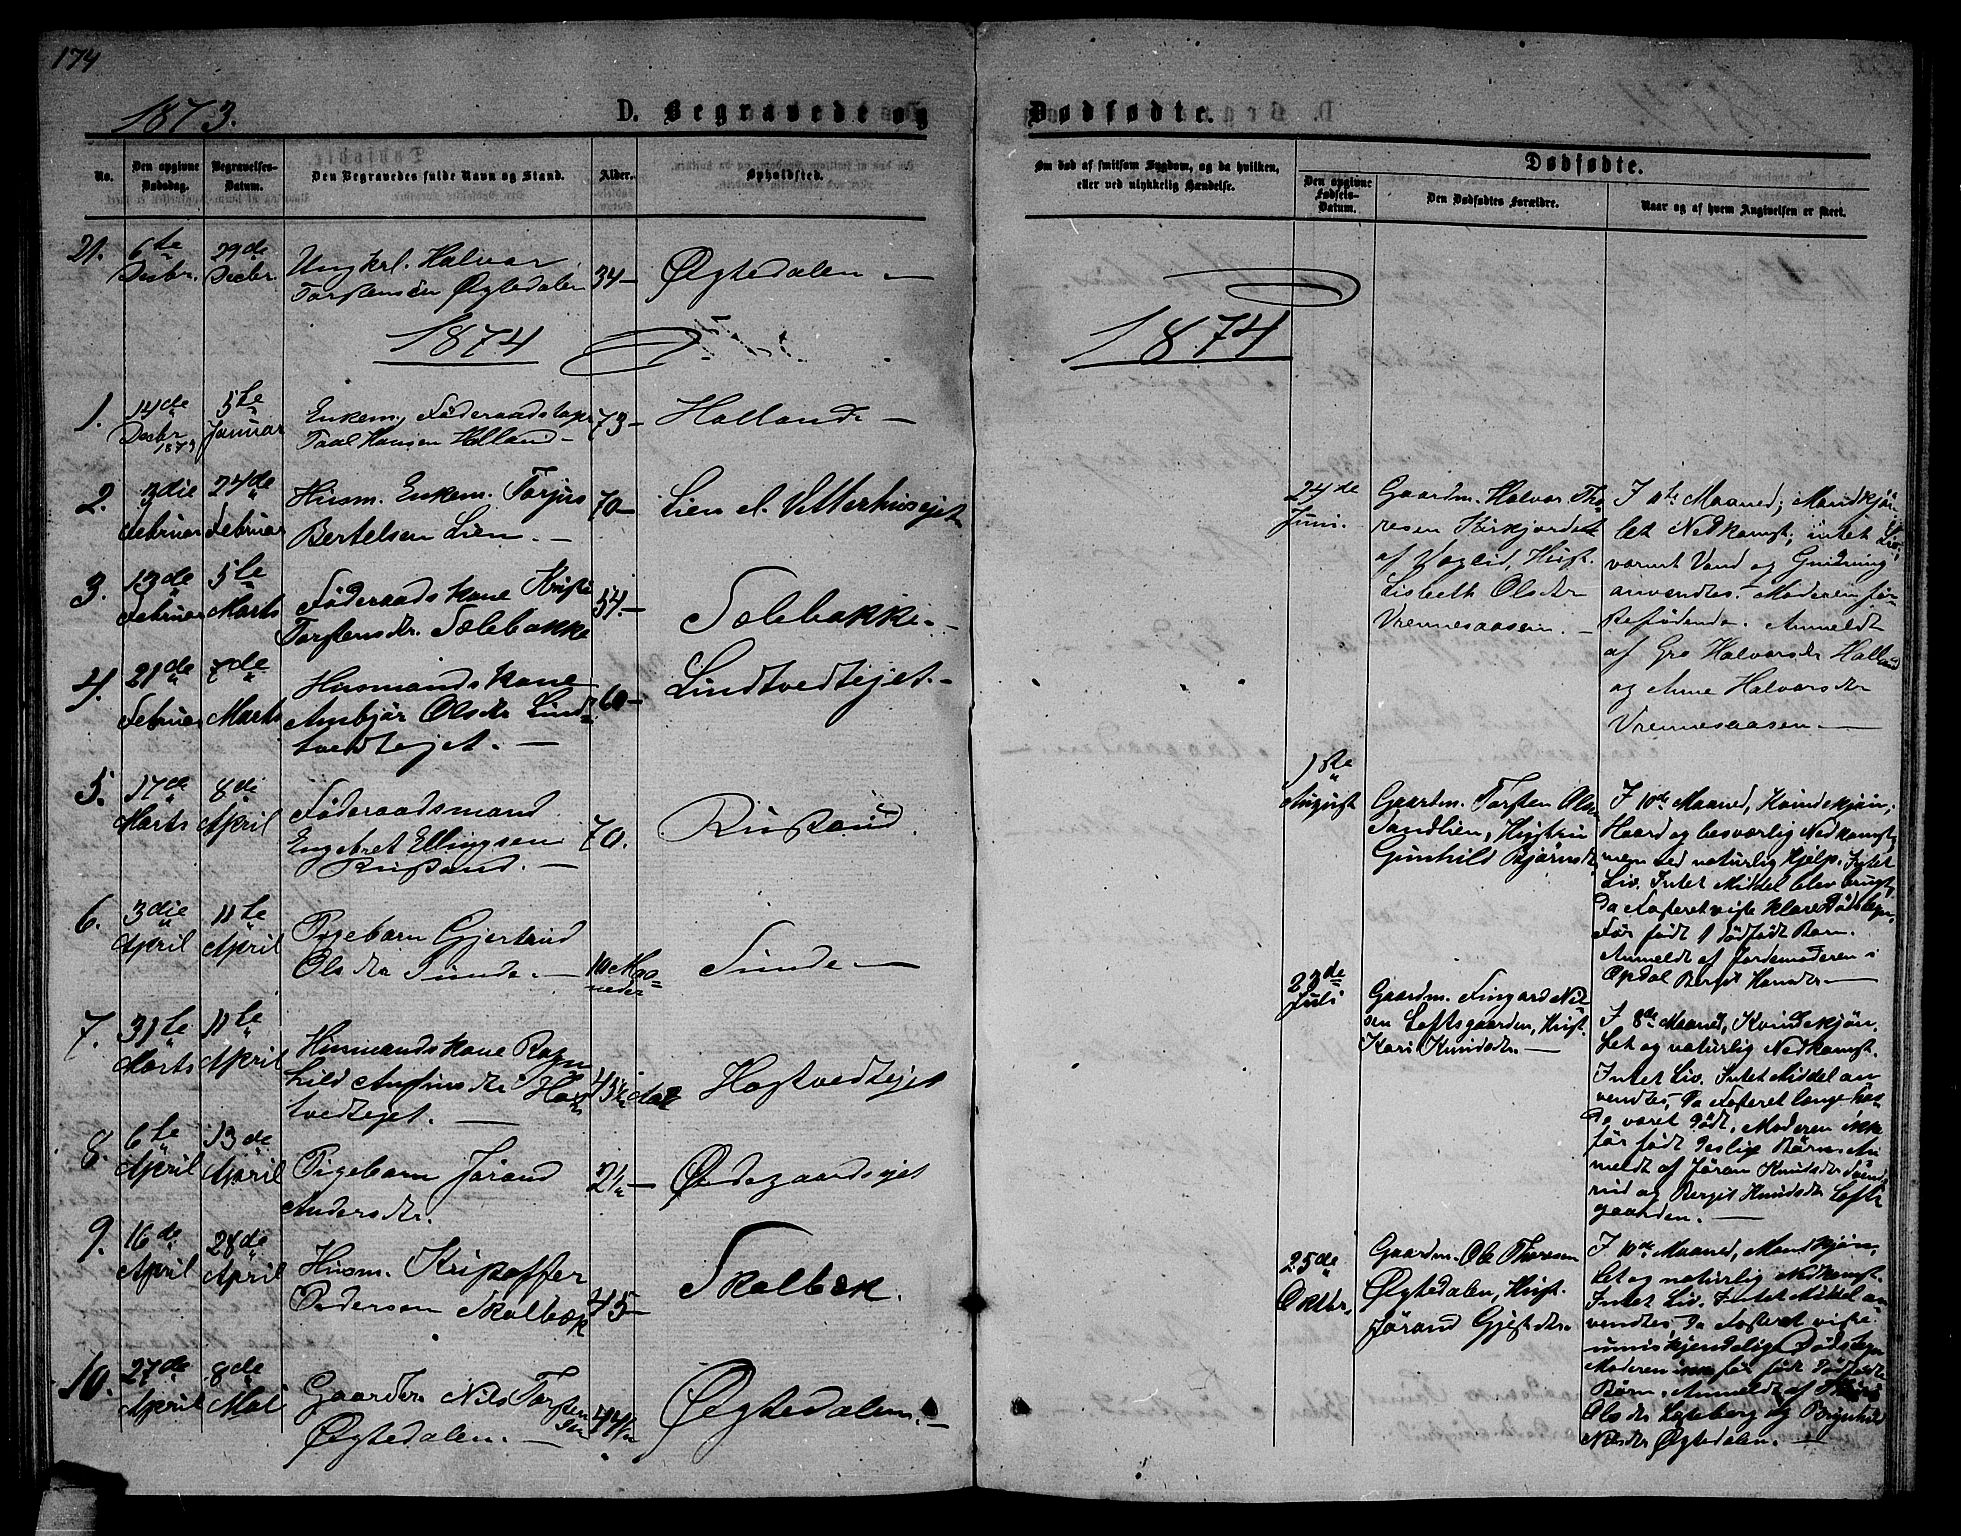 174
1873.
D. Begravede og
No.
Den opgivne Dødsdag.
Begravelses-Datum.
Den Begravedes fulde Navn og Stand.
Alder.
Opholdsted.
21.
6te Decbr.
29de Decbr
Ungkrl. Halvor
Torstensen Øygtedalen
34 –
Øygtedalen –
1874
1.
14de Decbr 1873
5te Januar
Enkem. Föderaadstager
Paal Hansen Holland –
73 –
Holland –
2.
3die Februar
24de Februar
Husm. Enkem. Torjus
Bertelsen Lien. –
70 –
Lien
3.
13de Februar
5te Marts
Föderaadskone Kristi
Torstensdtr. Solebakke
54. –
Solebakke. –
4.
21de Februar
7de Marts
Husmandskone
Ansbjör Olsdtr Lindt-
tvedtejet. –
60 –
Lindtvedtejet. –
5.
17de Marts
8de April
Föderaadsmand
Engebret Ellingsen
Rustand. –
70.
Rustand.
6.
3die April
11te April
Pigebarn Gjertrud
Olsdtr Sunde. –
10 Maa-
neder
Sunde –
7.
31te Marts
11te April
Husmandskone Ragn-
hild
tvedtejet. –
45
Hogtvedtejet
8.
6te April
13de April
Pigebarn Jörand
Andersdtr.
2½ –
Ødegaardsejet
9.
16de April
28de April
Husm. Kristoffer
Pedersen Skolbæk
45 –
Skolbæk.
10.
27de April
8de Mai
Gaardbr. Nils Torsten
sen
Øygtedalen. –
44½
Øygtedalen. –
Dødfødte.
Om død af smitsom Sygdom, og da hvilken,
eller ved ulykkelig Hændelse.
Dødfødte.
Den opgivne Fødsels-Datum.
Den Dødfødtes Forældre.
Naar og af hvem Angivelsen er skeet.
1874
24de Juni.
Gaardm. Halvor Tho-
resen Kirkjordet
af Vaglid, Hust.
Lisbeth Olsdtr
Vrennesaasen. –
I 10de Maaned; Mandkjön
let Nedkomst, intet Liv,
varmt Vand og Gnidning
anvendtes. Moderen för-
stefödende. Anmeldt
af Gro Halvorsdtr Holland
og Anne Halvorsdtr
Vrennesaasen. –
1ste August
Gaardm. Torsten Olsen
Sandlien, Hustru
Gunhild Björnsdtr
I 10de Maaned, Kvindekjön,
Haard og besværlig Nedkomst,
men ved naturlig Hjelp. Intet
Liv. Intet Middel blev brugt,
Da Fosteret viste klare Dödstegn,
Før født 1 dødfødt Barn.
Anmeldt af Jordemoderen i
Opdal Bergit
23de Juli
Gaardm. Fingard Nil-
sen Loftsgaarden, Hust.
Kari Knudsdtr. –
I 8de Maaned, Kvindekjön.
Let og naturlig Nedkomst.
Intet Liv. Intet Middel an-
vendtes, da Fosteret længe hav-
de været Dødt, Moderen ikke
før født deslige Børn. An-
meldt af Jøran Knudsdtr
og Bergit Knudsdtr Lofts-
gaarden. –
25de Oktbr.
Gaardm. Ole Thoresen
Øygtedalen, Hust.
Jörand
I 10de Maaned, Mandkjön,
Let og naturlig Nedkomst.
Intet Liv. Intet Middel an-
vendtes, da Fosteret viste
umiskjendelige Dødstegn
Moderen før født Dødfødte
Børn. Anmeldt af
Olsdtr og Bryn
Nilsdtr Øygtedalen. –